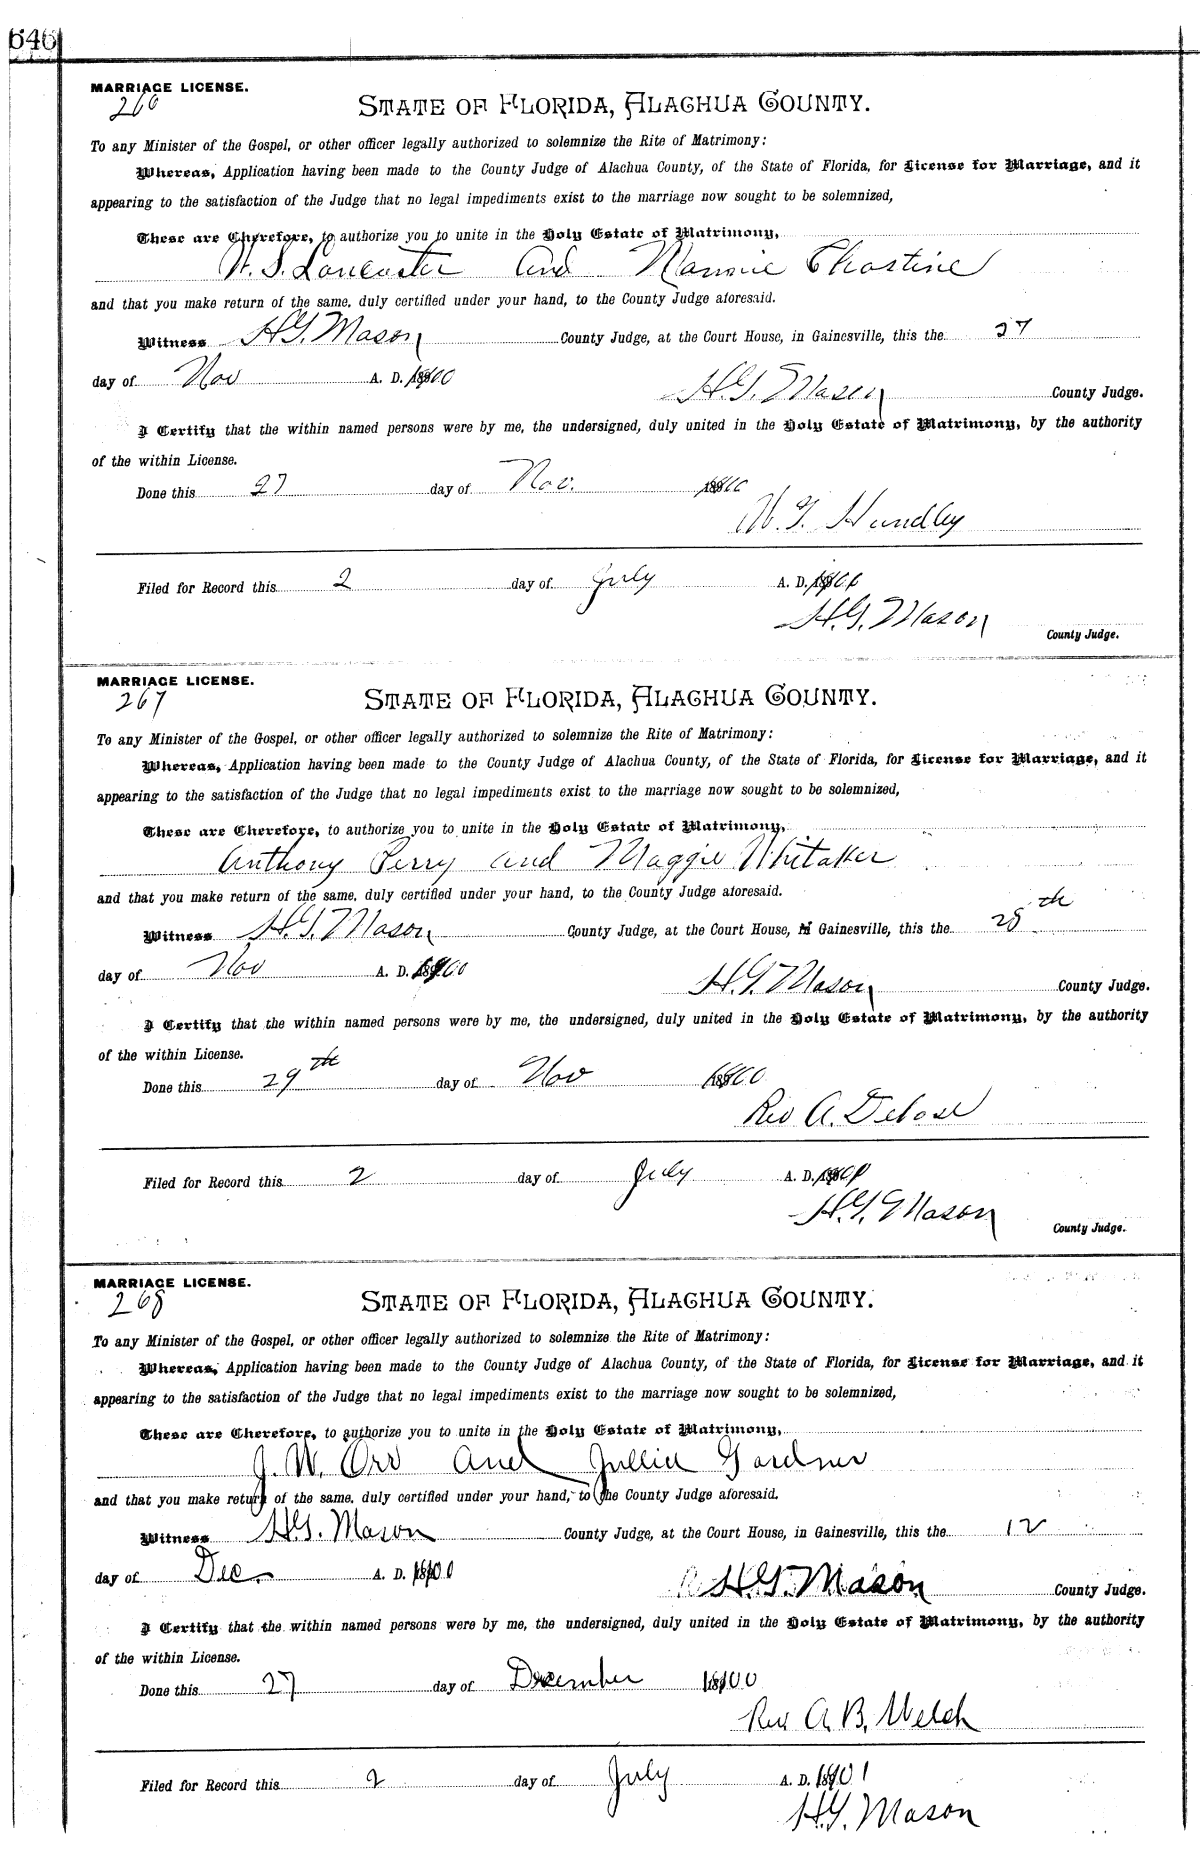 646
MARRIAGE LICENSE.
266
STATE OF FLORIDA, ALACHUA COUNTY.
To any Minister of the Gospel, or other officer legally authorized to solemnize the Rite of Matrimony:
Whereas, Application having been made to the County Judge of Alachua County, of the State of Florida, for License for Marriage, and it
appearing to the satisfaction of the Judge that no legal impediments exist to the marriage now sought to be solemnized,
These are Therefore, to authorize you to unite in the Holy Estate of Matrimony,
W. S. Lancaster and Nannie Chastine
and that you make return of the same, duly certified under your hand, to the County Judge aforesaid.
Witness H.G. Mason County Judge, at the Court House, in Gainesville, this the 27
day of Nov A. D. 1900
H.G. Mason County Judge.
I Certify that the within named persons were by me, the undersigned, duly united in the Holy Estate of Matrimony, by the authority
of the within License.
Done this 27 day of Nov. 1900
W. G. Hundley
Filed for Record this 2 day of July A. D. 1901
H.G. Mason
County Judge.
MARRIAGE LICENSE.
267
STATE OF FLORIDA, ALACHUA COUNTY.
To any Minister of the Gospel, or other officer legally authorized to solemnize the Rite of Matrimony:
Whereas, Application having been made to the County Judge of Alachua County, of the State of Florida, for License for Marriage, and it
appearing to the satisfaction of the Judge that no legal impediments exist to the marriage now sought to be solemnized,
These are Therefore, to authorize you to unite in the Holy Estate of Matrimony,
Anthony Perry and Maggie Whitaker
and that you make return of the same, duly certified under your hand, to the County Judge aforesaid.
Witness H.G. Mason County Judge, at the Court House, in Gainesville, this the 28th
day of Nov A. D. 1900
H.G. Mason County Judge.
I Certify that the within named persons were by me, the undersigned, duly united in the Holy Estate of Matrimony, by the authority
of the within License.
Done this 29th day of Nov 1900
Rev A. Debose
Filed for Record this 2 day of July A. D. 1901
H.G. Mason
County Judge.
MARRIAGE LICENSE.
268
STATE OF FLORIDA, ALACHUA COUNTY.
To any Minister of the Gospel, or other officer legally authorized to solemnize the Rite of Matrimony:
Whereas, Application having been made to the County Judge of Alachua County, of the State of Florida, for License for Marriage, and it
appearing to the satisfaction of the Judge that no legal impediments exist to the marriage now sought to be solemnized,
These are Therefore, to authorize you to unite in the Holy Estate of Matrimony,
J. W. Orr and Jullia Gardner
and that you make return of the same, duly certified under your hand, to the County Judge aforesaid.
Witness H.G. Mason County Judge, at the Court House, in Gainesville, this the 12
day of Dec. A. D. 1900
H.G. Mason County Judge.
I Certify that the within named persons were by me, the undersigned, duly united in the Holy Estate of Matrimony, by the authority
of the within License.
Done this 27 day of December 1900
Rev A. B. Welch
Filed for Record this 2 day of July A. D. 1901
H.G. Mason